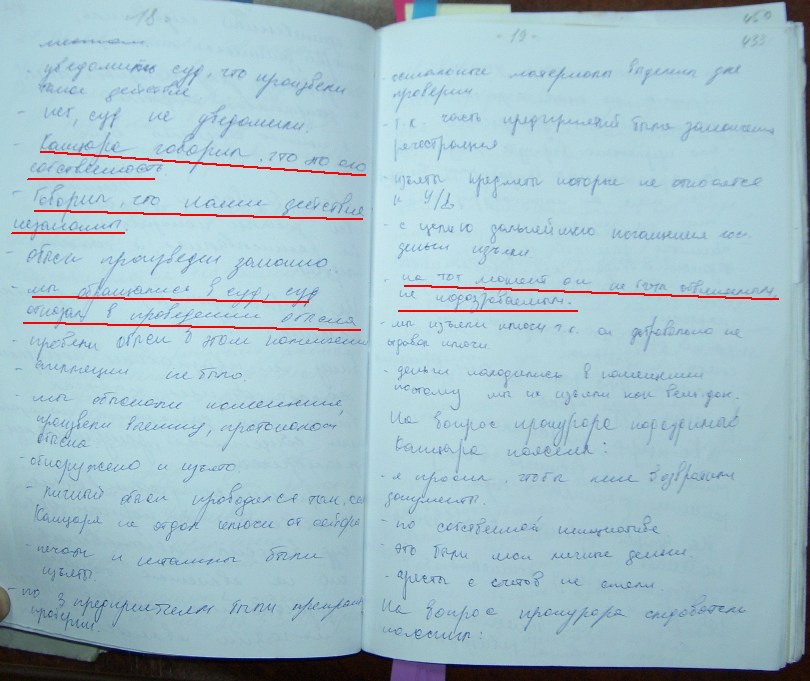 - 18 -
уведомить суд, что произвели
такое действие
- нет, суд не уведомили.
- Кацюра говорил, что это его
собственность
- Говорил, что наши действия
незаконны.
- обыск произведен законно
- мы обращались в суд, суд
отказал в проведении обыска
- провели обыск в этом помещении
не было.
- мы обыскали помещение,
произвели выемку, протоколом
обыска
- обнаружено и изъято.
- личный обыск проводился там, сам
Кацюра не отдал ключи от сейфа
- печати и штампы были
изъяты.
- по 3 предприятиям были
проверки.
- 19 -
450
433
- остальные материалы выделили для
проверки
- т.к. часть предприятий были законно
регистрация
- изъяты предметы которые не относятся
к У/Д
- с целью дальнейшего погашения
деньги изъяли
- на тот момент он не был обвиняемым,
не подозреваемым.
- мы изъяли ключи т.к. он добровольно не
выдавал ключи
- деньги находились в помещении
поэтому мы их изъяли как вещ. док.
На вопрос прокурора подсудимый
Кацюра пояснил:
- я просил, чтобы мне возвратили
документы.
- по собственной инициативе
- это были мои личные деньги
- аресты с счетов не сняли.
На вопрос прокурора следователь
пояснил: